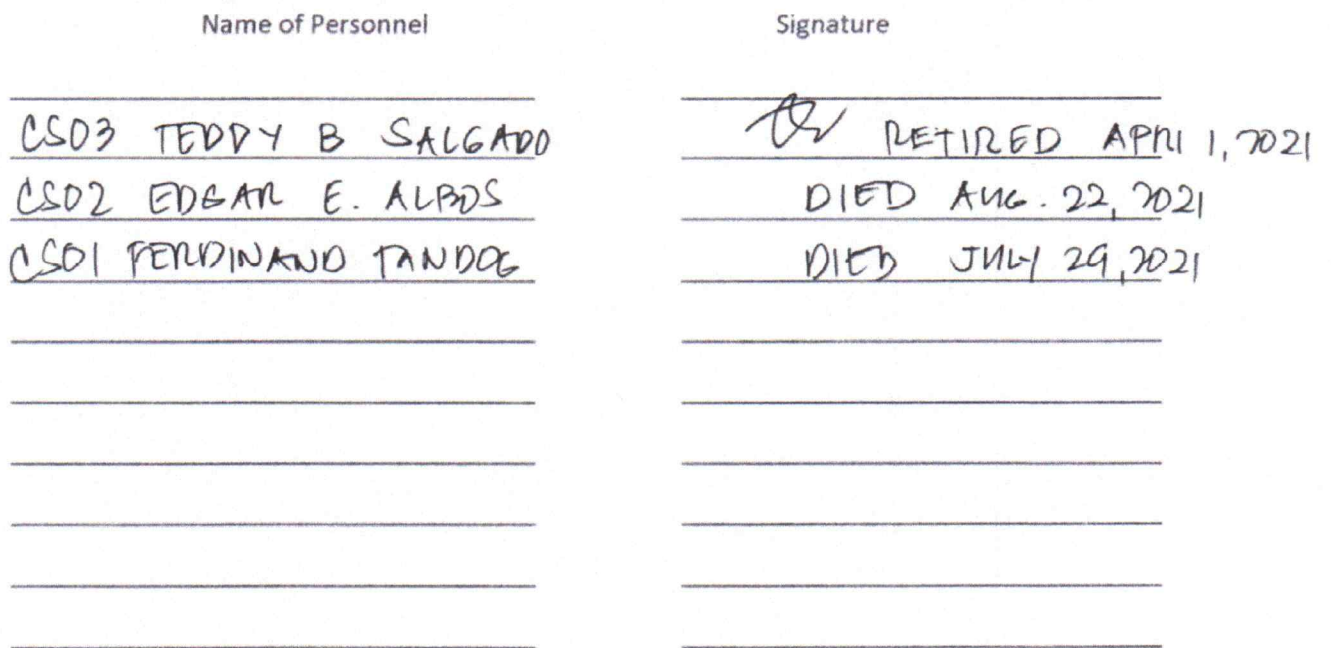 Name of Personnel Signature
CSO3 TEDDY B SALGADO RETIRED APRIl 1, 2021
CSO2 EDGAR E. ALBOS DIED AUG. 22, 2021
CSO1 FERDINAND TANDOG DIED JULY 29, 2021